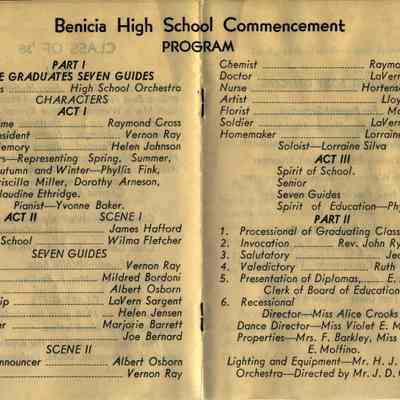 Benicia High School Commencement
PROGRAM
PART I
E GRADUATES SEVEN GUIDES
s High School Orchestra
CHARACTERS
ACT I
me Raymond Cross
esident Vernon Ray
emory Helen Johnson
rs—Representing Spring, Summer,
utumn and Winter—Phyllis Fink,
riscilla Miller, Dorothy Arneson,
laudine Ethridge.
Pianist—Yvonne Baker.
ACT II SCENE I
James Hafford
School Wilma Fletcher
SEVEN GUIDES
Vernon Ray
Mildred Bordoni
Albert Osborn
ip LaVern Sargent
Helen Jensen
er Marjorie Barrett
Joe Bernard
SCENE II
nnouncer Albert Osborn
Vernon Ray
Chemist Raymo
Doctor LaVern
Nurse Hortens
Artist Lloy
Florist Ma
Soldier LaVern
Homemaker Lorraine
Soloist—Lorraine Silva
ACT III
Spirit of School.
Senior
Seven Guides
Spirit of Education—Phy
PART II
1. Processional of Graduating Class
2. Invocation Rev. John Ry
3. Salutatory Jea
4. Valedictory Ruth
5. Presentation of Diplomas, E.
Clerk of Board of Education
6. Recessional
Director—Miss Alice Crooks
Dance Director—Miss Violet E. M
Properties—Mrs. F. Barkley, Miss
E. Moffino.
Lighting and Equipment—Mr. H. J.
Orchestra—Directed by Mr. J. D. C